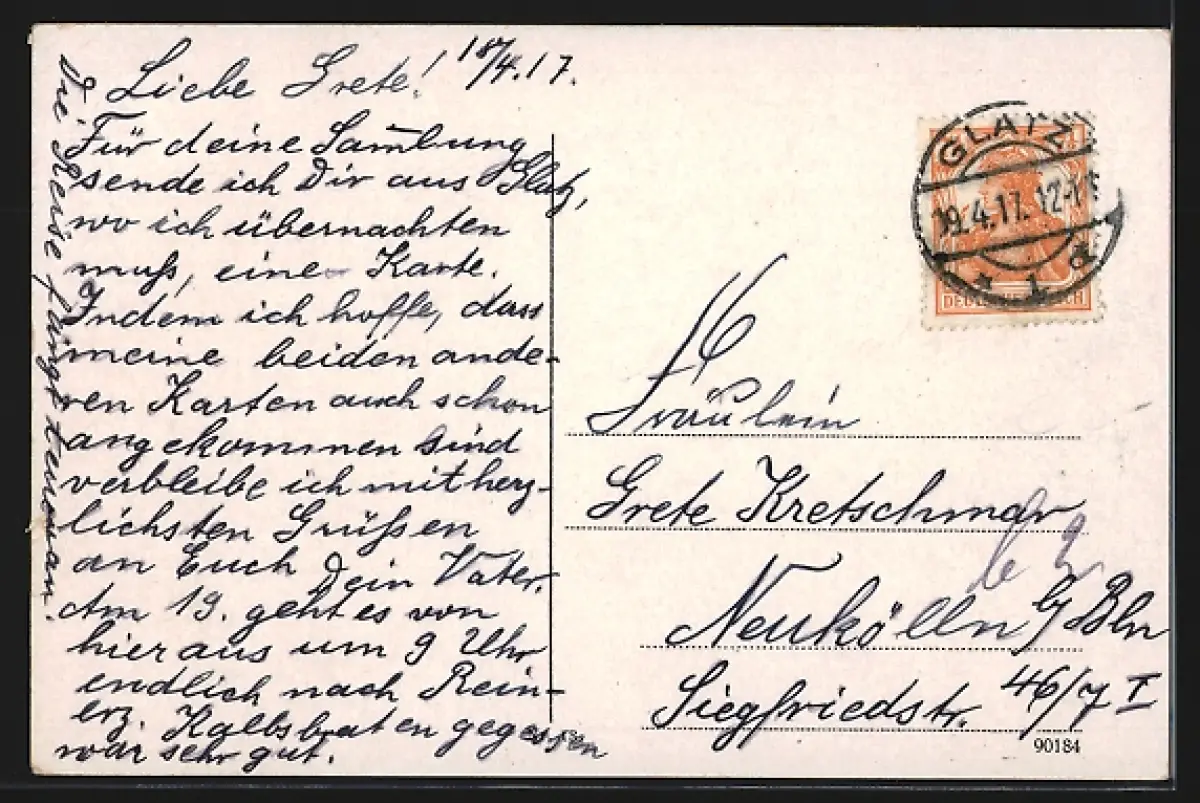 Liebe Grete! 18/4.17.
Für deine Sam̅lung
sende ich Dir aus Glatz,
wo ich übernachten
muß, eine Karte.
Indem ich hoffe, dass
meine beiden ande-
ren Karten auch schon
angekommen sind
verbleibe ich mit herz-
lichsten Grüßen
an Euch Dein Vater.
Am 19. geht es von
hier aus um 9 Uhr
endlich nach Rein-
erz. Kalbsbraten gegessen
war sehr gut.
Die Reise fängt teuer an.
GLATZ
19.4.17. 12-1
* 1 d
DEUTSCHES REICH
Fräulein
Grete Kretschmar
Neukölln b/Bln
Siegfriedstr. 46/7 I
90184